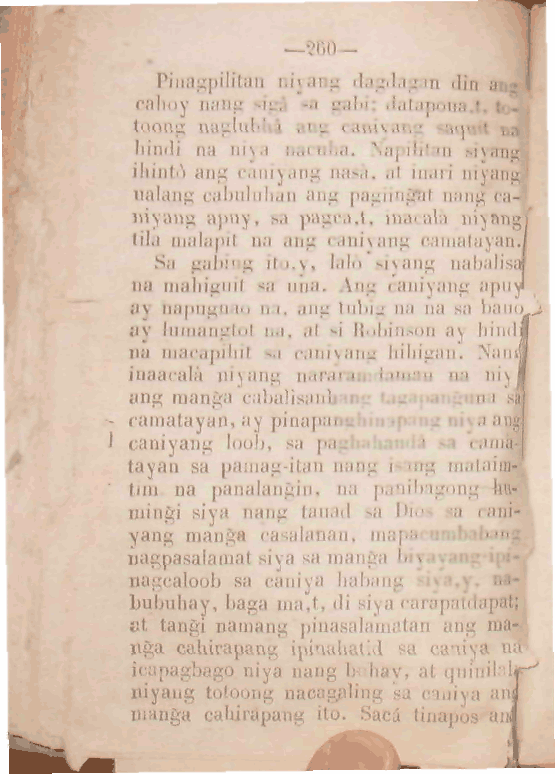 —260—
Pinagpilitan niyang dagdagan din ang
cahoy nang sigâ sa gabi; datapoua,t, to-
toong naglubhâ ang caniyang saquit na
hindi na niya nacuha. Napilitan siyang
ihintô ang caniyang nasà, at inari niyang
ualang cabuluhan ang pagiingat nang ca-
niyang apuy, sa pagca,t, inacalà niyang
tila malapit na ang caniyang camatayan.
Sa gabing ito,y, lalò siyang nabalisa
na mahiguit sa una. Ang caniyang apuy
ay napugnao na, ang tubig na na sa bauo
ay lumangtot na, at si Robinson ay hindi
na macapihit sa caniyang hihigan. Nang
inaacalà niyang nararamdaman na niy
ang manga cabalisanhang tagapanguna sa
camatayan, ay pinapanghinapang niya ang
caniyang loob, sa paghahandâ sa cama-
tayan sa pamag-itan nang isang mataim-
tim na panalangin, na panibagong hu-
mingi siya nang tauad sa Dios sa cani-
yang manga casalanan, mapacumbabang
nagpasalamat siya sa manga biyayang ipi-
nagcaloob sa caniya habang siya,y, na-
bubuhay, baga ma,t, di siya carapatdapat;
at tangi namang pinasalamatan ang ma-
nga cahirapang ipinahatid sa caniya na
icapagbago niya nang buhay, at quinilala
niyang totoong nacagaling sa caniya ang
manga cahirapang ito. Sacá tinapos ang